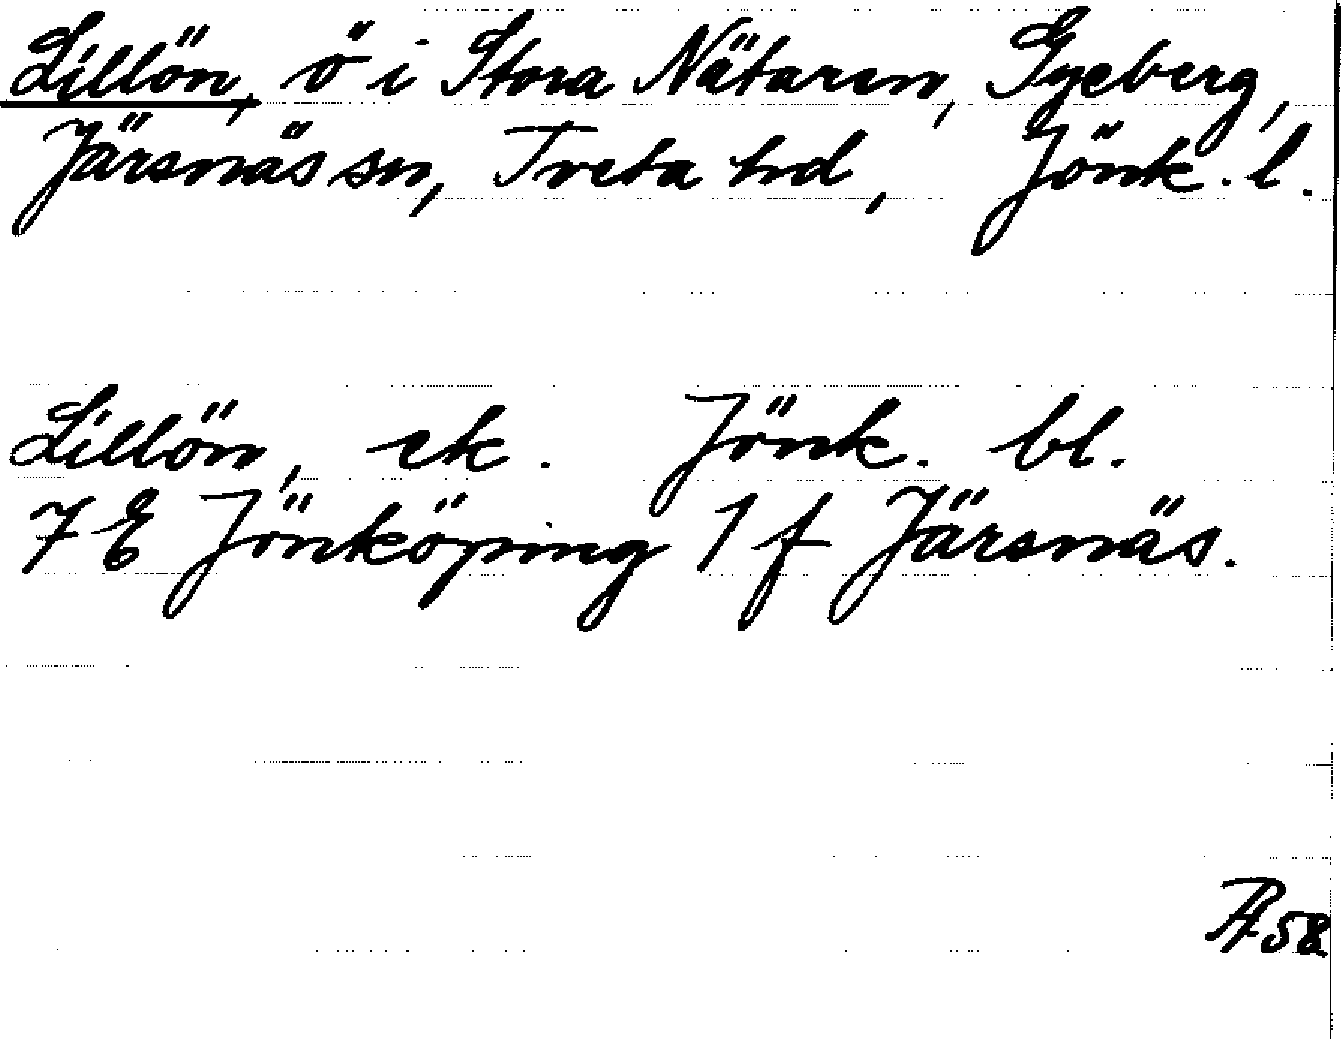 Lillön, ö i Stora Nätaren, Gyeberg,
Järsnäs sn, Tveta hd, Jönk. l.
Lillön, ek. Jönk. bl.
7 E Jönköping 1 f Järsnäs.
58